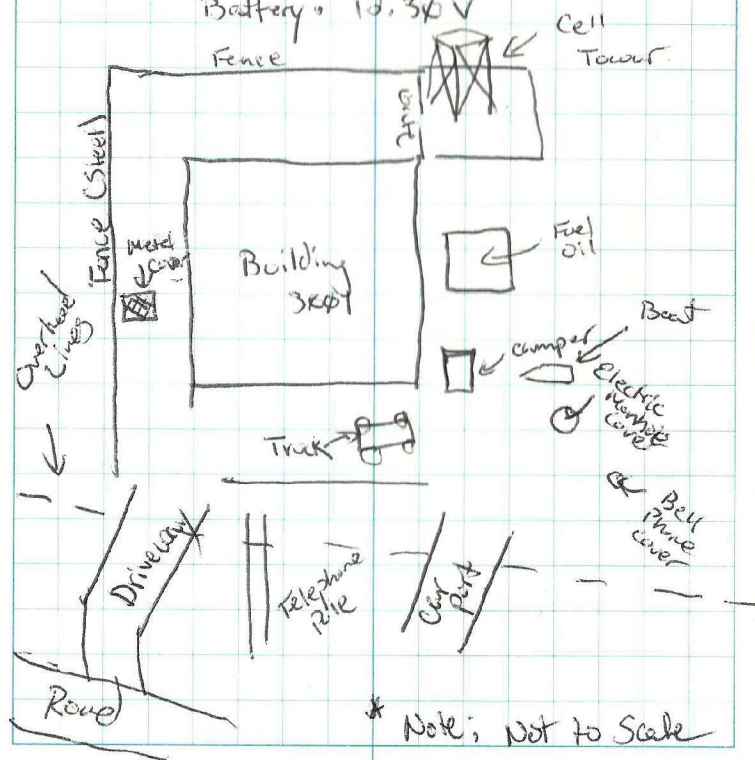 Battery:
Cell
Tower
Fence
Fence (Steel)
Metal
Cover
Building
Fuel
Oil
Overhead
Lines
Camper
Boat
Electric
Manhole
Cover
Truck
Bell
Phone
Cover
Driveway
Telephone
Pole
Car
port
Road
* Note: Not to Scale